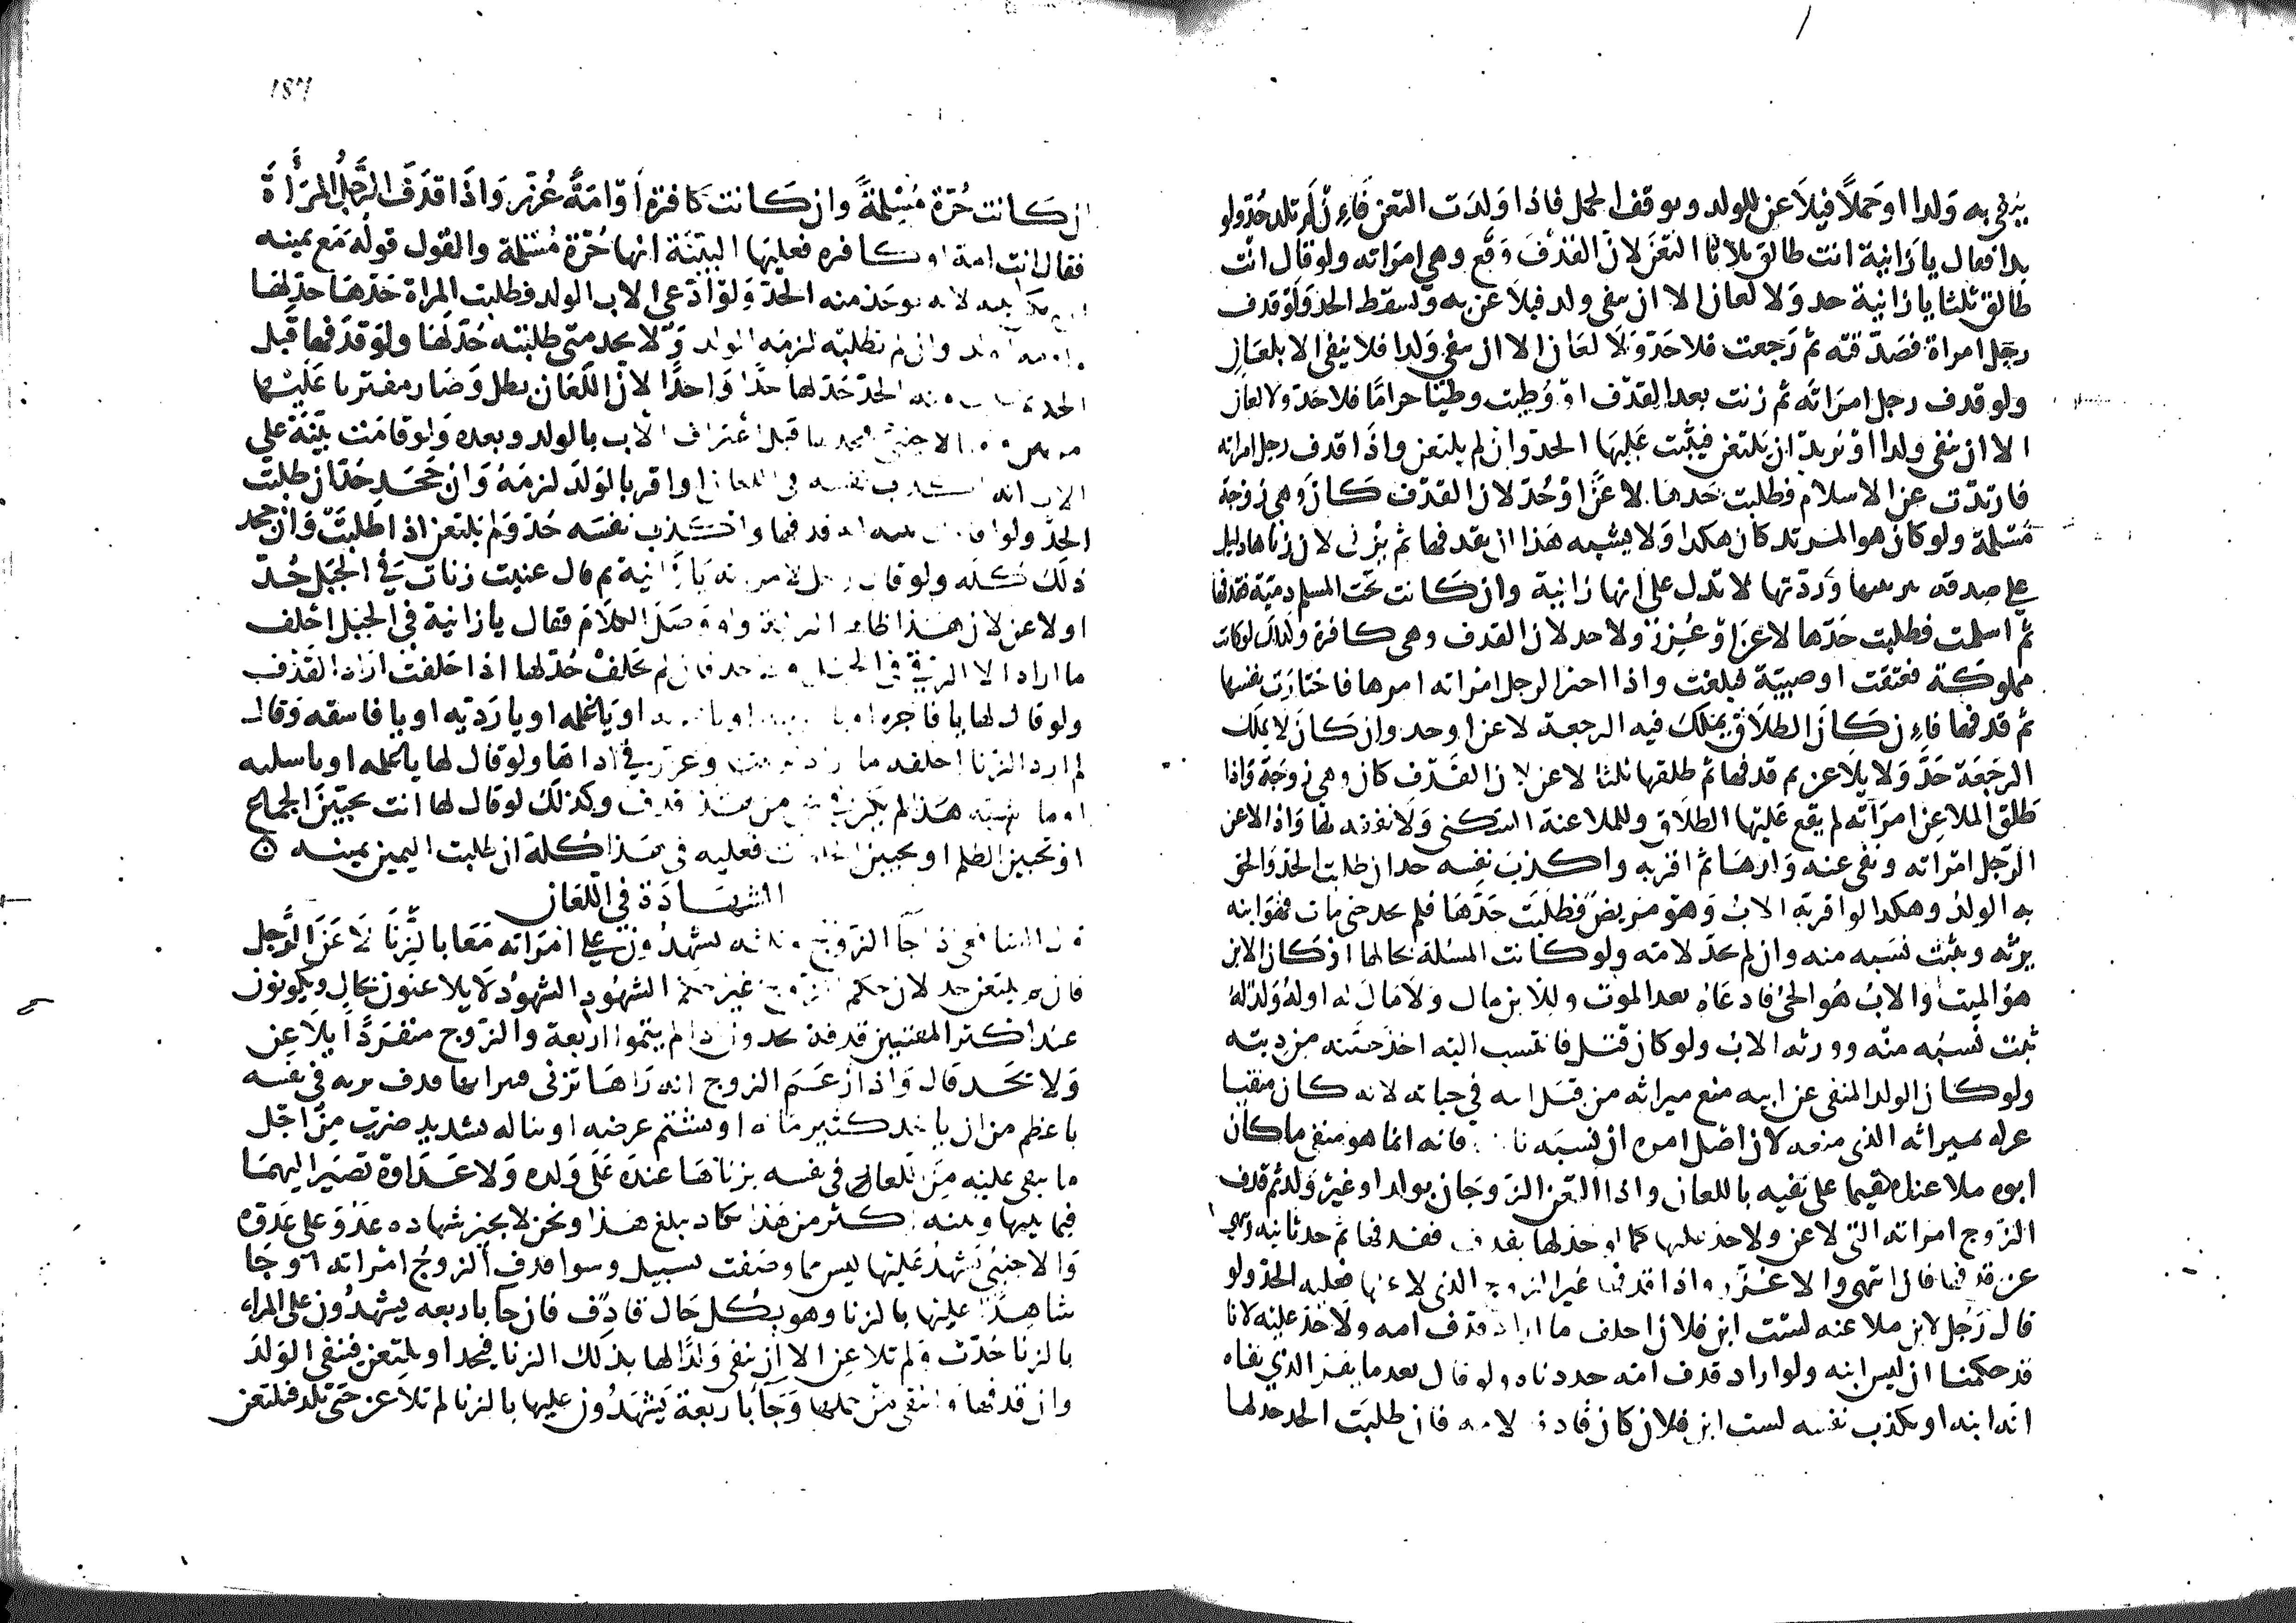 ينفي به ولدا او حملا فيلاعن للولد ويوقف الحمل فاذا ولدت التعن فإن لم تلد حد ولو
بدا فقال يا زانية انت طالق ثلاثا التعن لان القذف وقع وهي امراته ولو قال انت
طالق ثلثا يا زانية حد ولا لعان الا ان ينفي ولد فيلاعن به ويسقط الحد ولو قذف
رجل امراة فصدقته ثم رجعت فلا حد ولا لعان الا ان ينفي ولدا فلا ينفى الا بلعان
ولو قذف رجل امراته ثم زنت بعد القذف او وطيت وطيا حراما فلا حد ولا لعان
الا ان ينفي ولدا او يريد ان يلتعن فيثبت عليها الحد وان لم يلتعن واذا قذف رجل امراته
فارتدت عن الاسلام فطلبت حدها لاعن او حد لان القذف كان وهي زوجة
مسلمة ولو كان هو المرتد كان هكذا ولا يشبه هذا ان يقذفها ثم يزنى لان زناها دليل
على صدقه وردتها لا تدل على انها زانية وان كانت تحت المسلم ذمية فقذفها
ثم اسلمت فطلبت حدها لاعن او عزر ولا حد لان القذف وهي كافرة وكذلك لو كانت
مملوكة فعتقت او صبية فبلغت واذا الرجل امراته امرها فاختارت نفسها
ثم قذفها فإن كان الطلاق يملك فيه الرجعة لاعن او حد وان كان لا يملك
الرجعة حد ولا يلاعن ثم قذفها ثم طلقها ثلثا لاعن لان القذف كان وهي زوجة واذا
طلق الملاعن امراته لم يقع عليها الطلاق وللملاعنة السكنى ولا نفقة لها واذا لاعن
الرجل امراته ونفى عنه ولدها ثم اقر به واكذب نفسه حد ان طلبت الحد والحق
به الولد وهكذا لو اقر به الاب وهو مريض فطلبت حدها فلم يحد حتى مات فهو ابنه
يرثه ويثبت نسبه منه وان لم يحد لامه ولو كانت المسئلة بحالها اذ كان الابن
هو الميت والاب هو الحي فادعاه بعد الموت وللابن مال ولا مال له او له ولد له
ثبت نسبه منه وورثه الاب ولو كان قتل فانتسب اليه اخذ حصته من ديته
ولو كان الولد المنفى عن ابيه منع ميراثه من قبل امه في حياته لانه كان منفيا
ميراثه الذي منعه لان اصل امره ان نسبه ثابت فانه انما هو منفي ما كان
ابوه ملاعنا مقيما على نفيه باللعان واذا التعن الزوجان بولد او غير ولد ثم قذف
الزوج امراته التي لاعن ولا حد عليه كما لو حد لها بقذف فقذفها ثم حد ثانية
عن قذفها فان انتهى والا عزر واذا قذفها غير الزوج الذي لاعنها فعليه الحد ولو
قال رجل لابن ملاعنه لست ابن فلان احلف ما اراد قذف امه ولا حد عليه لانا
قد حكمنا ان ليس ابنه ولو اراد قذف امه حددناه ولو قال بعد ما يقر الذي نفاه
انه ابنه او يكذب نفسه لست ابن فلان كان قاذفا لامه فان طلبت الحد حد لها
ان كانت حرة مسلمة وان كانت كافرة او امة عزر واذا قذف الرجل المراة
فقال انت امة او كافره فعليها البينة انها حرة مسلمة والقول قوله مع يمينه
لانه يوخذ منه الحد ولو ادعى الاب الولد فطلبت المراة حدها حد لها
وان لم تطلبه لزمه الولد ولا يحد متى طلبته حد لها ولو قذفها قبل
الحد حد لها حدا واحدا لان اللعان بطل وصار مفتريا عليها
الاجنبي قبل اعتراف الاب بالولد وبعده ولو قامت بينة على
الاب انه اكذب نفسه في اللعان او اقر بالولد لزمه وان جحد حد ان طلبت
الحد ولو اقامت بينه انه قذفها واكذب نفسه حد ولم يلتعن اذا طلبت وان جحد
ذلك كله ولو قال رجل لامراته يا زانية ثم قال عنيت زنات في الجبل حد
او لاعن لان هذا ظاهر وان وصل الكلام فقال يا زانية في الجبل احلف
ما اراد الا الرقي في الجبل ولا حد فان لم يحلف حد لها اذا حلفت اراد القذف
ولو قال لها يا فاجره او يا خبيثه او يا غلمه او يا رديه او يا فاسقه وقال
لم ارد الزنا احلف ما اراد وعزر في اذاها ولو قال لها يا غلمه او يا شبقه
او ما يشبه هذا لم يكن في شي من هذا قذف وكذلك لو قال لها انت تحبين الجماع
او تحبين الظلم او تحبين فعليه في هذا كله ان طلبت اليمين يمينه
الشهادة في اللعان
قال الشافعي اذا جا الزوج وثلثه يشهدون على امراته معا بالزنا لاعن الرجل
فان لم يلتعن حد لان حكم الزوج غير حكم الشهود الشهود لا يلاعنون بحال ويكونون
عند اكثر المفتيين قذفة يحدون اذا لم يتموا اربعة والزوج منفردا يلاعن
ولا يحد قال واذا زعم الزوج انه راها تزنى قذف في نفسه
باعظم من ان ياخذ كثير ماله او شتم عرضه او يناله بشديد ضرب من اجل
ما يبقى عليه من العار في نفسه بزناها عنده على ولده ولا عداوة تصير اليهما
فيما بينها وبينه اكثر من هذا تكاد تبلغ هذا ونحن لا نجيز شهاده عدو على عدوه
والاجنبي يشهد عليها ليس مما وصفت بسبيل وسوا قذف الزوج امراته او جا
شاهدا عليها بالزنا وهو بكل حال قاذف فان جا باربعه يشهدون على المراه
بالزنا حدت ولم تلاعن الا ان ينفى ولدا لها بذلك الزنا فيحد او يلتعن فينفى الولد
وان قذفها وانتفى من حملها وجا باربعة يشهدون عليها بالزنا لم تلاعن حتى تلد فيلتعن